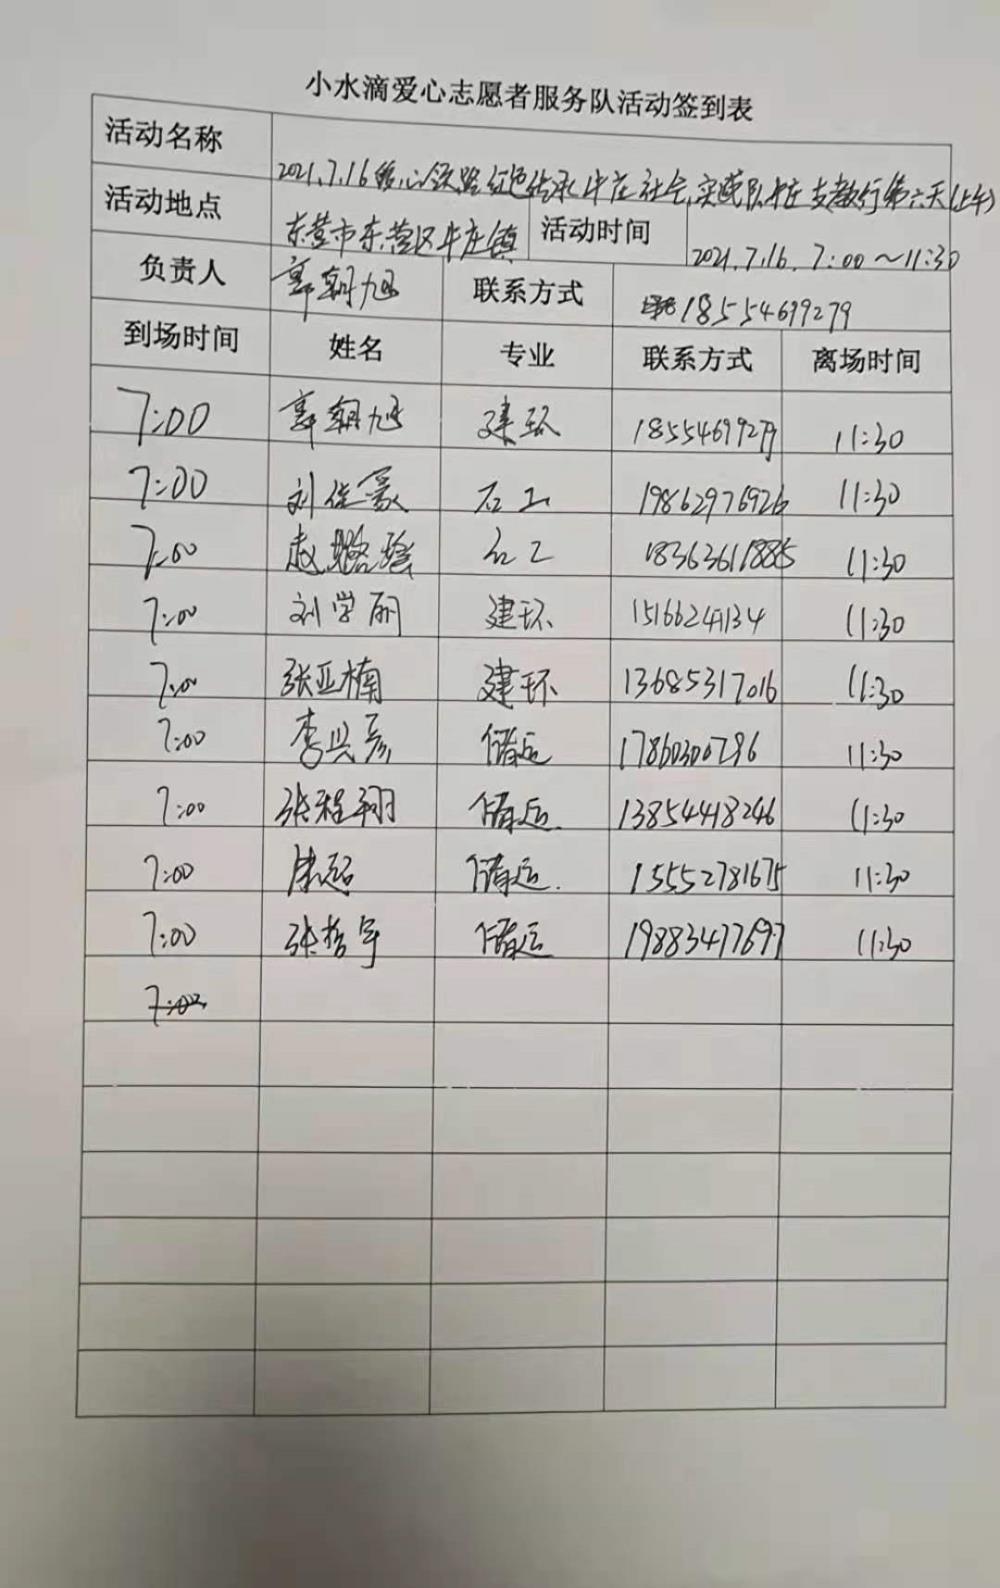 小水滴爱心志愿者服务队活动签到表
活动名称 2021.7.16 心 红色传承牛庄社会实践队 支教行第六天(上午)
活动地点 东营市东营区牛庄镇 活动时间 2021.7.16. 7:00~11:30
负责人 郭朝旭 联系方式 18554699279
到场时间 姓名 专业 联系方式 离场时间
7:00 郭朝旭 建环 18554699279 11:30
7:00 刘佳豪 石工 19862976926 11:30
7:00 赵璐瑶 石工 18363611885 11:30
7:00 刘学丽 建环 15166241134 11:30
7:00 张亚楠 建环 13685317016 11:30
7:00 李兴彦 储运 17860300296 11:30
7:00 张程翔 储运. 13854418246 11:30
7:00 超 储运. 15552781675 11:30
7:00 张哲宇 储运 19883477697 11:30
7:00